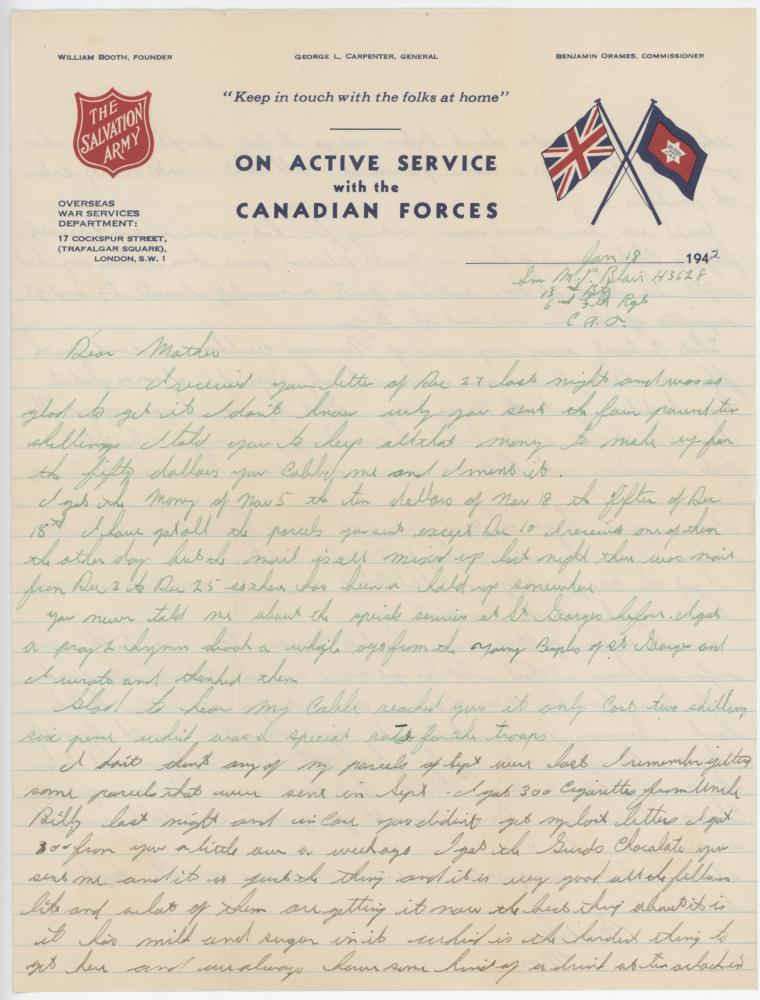 WILLIAM BOOTH, FOUNDER
GEORGE L. CARPENTER, GENERAL
BENJAMIN ORAMES, COMMISSIONER
THE
SALVATION
ARMY
"Keep in touch with the folks at home"
ON ACTIVE SERVICE
with the
CANADIAN FORCES
OVERSEAS
WAR SERVICES
DEPARTMENT:
17 COCKSPUR STREET,
(TRAFALGAR SQUARE),
LONDON, S.W. 1
Jan 18 1942
M.P. Blair H3628
Bty
Rgt
C.A.O.
Dear Mother
I received your letter of Dec 27 last night and was so
glad to get it I don't know why you sent the four pound ten
shillings I told you to keep all that money to make up for
the fifty dollars you cabled me and I meant it.
I got the money of Nov 5 the ten dollars of Nov 18 the fifteen of Dec
15th I have got all the parcels you sent except Dec 10 I received one of them
the other day but the mail is all mixed up last night there was mail
from Dec 3 to Dec 25 so there has been a hold up somewhere
you never told me about the special services at St Georges before. I got
a pray & hymn book a while ago from the Young Peoples of St Georges and
I wrote and thanked them
Glad to hear my Cable reached you it only cost two shilling
six pence which was a special rate for the troops
I don't think any of my parcels of Sept were lost I remember getting
some parcels that were sent in Sept. I got 300 Cigarettes from Uncle
Billy last night and in case you didn't get my last letters I got
300 from you a little over a week ago I got the Chocolate you
sent me and it is just the thing and it is very good all the fellows
like and a lot of them are getting it now the best thing about it is
it has milk and sugar in it which is the hardest thing to
get here and we always have some kind of a drink at ten oclock in